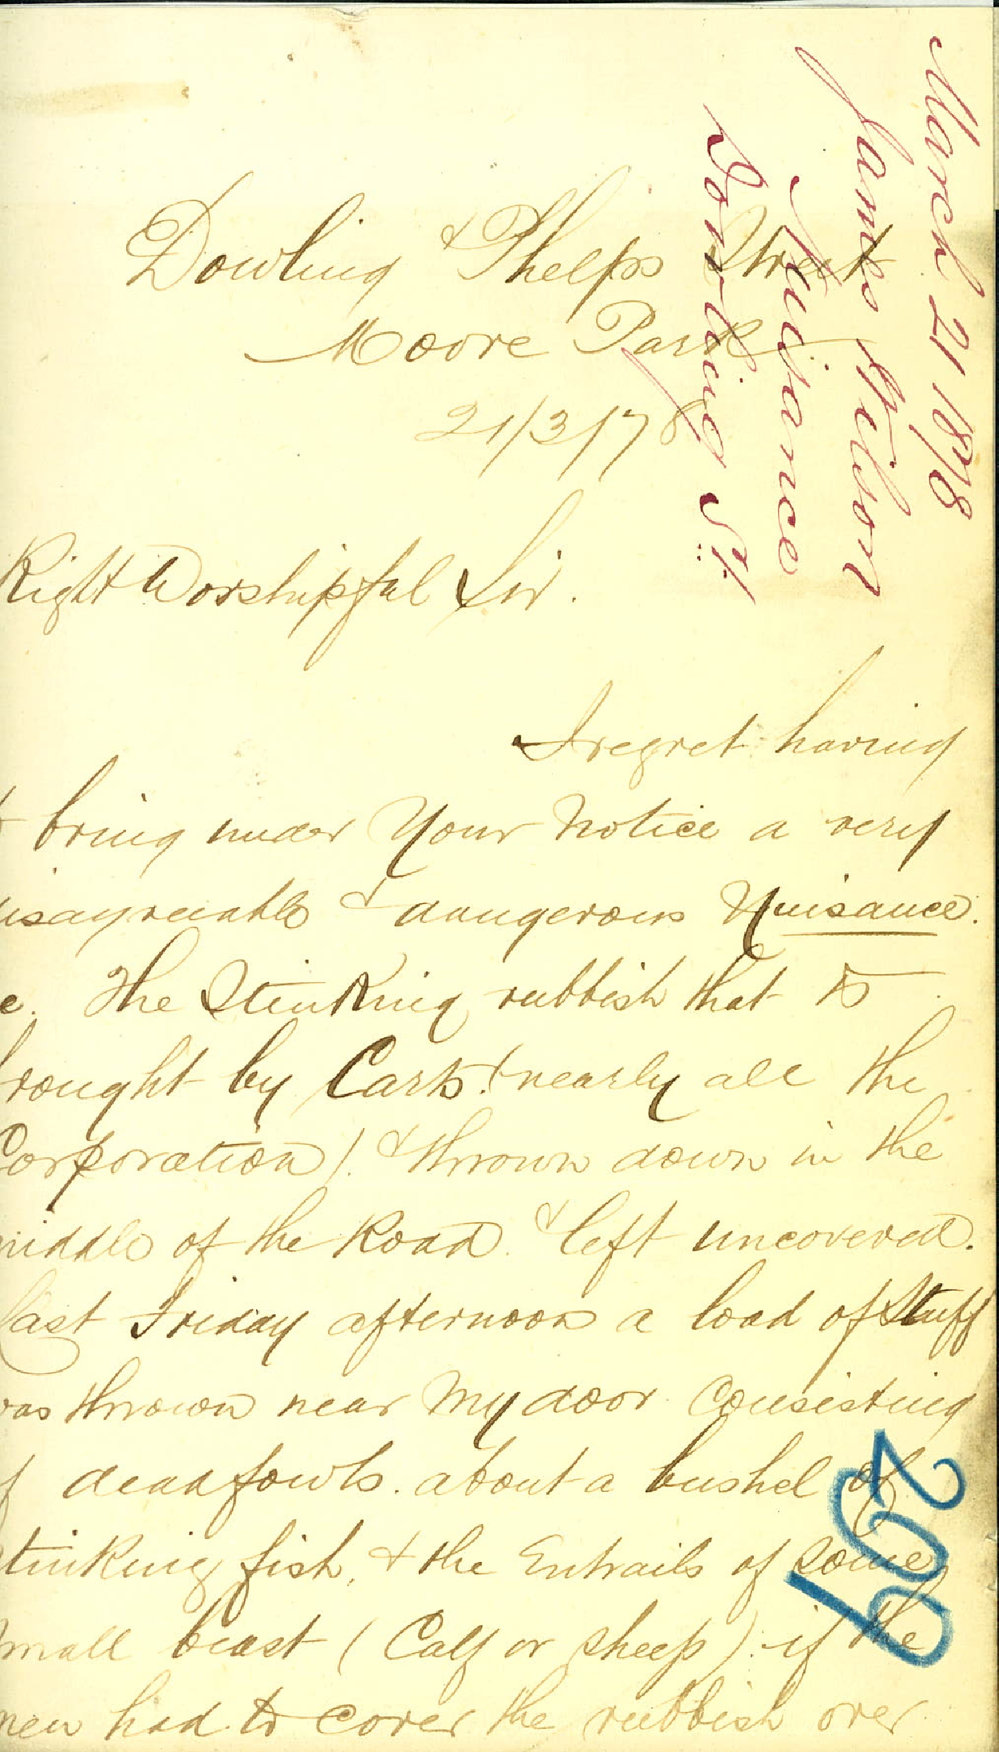 March 21 1878
James Wilson
Nuisance
Dowling St.
Dowling & Phelps Street
Moore Park
21/3/78
Right Worshipful Sir.
I regret having
bring under Your Notice a very
isagreeable & dangerous Nuisance.
e. The Stinking rubbish that is
rought by Carts (nearly all the
Corporation). & thrown down in the
middle of the Road. & left uncovered.
Last Friday afternoon a load of Stuff
was thrown near My door Consisting
f dead fowls. about a bushel of
tinking fish, & the Entrails of some
small beast (Calf or sheep): if the
men had to cover the rubbish over
209